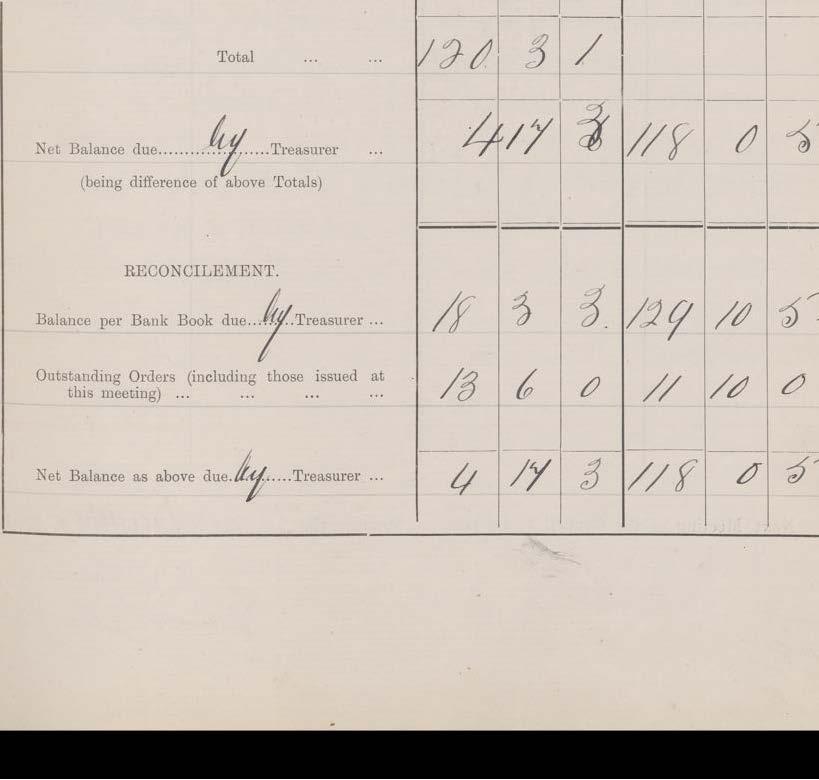 Total ... ... 120 3 1
Net Balance due.....by.....Treasurer ... 4 17 3 118 0 5
(being difference of above Totals)
RECONCILEMENT.
Balance per Bank Book due...by..Treasurer ... 18 3 3. 129 10 5
Outstanding Orders (including those issued at
this meeting) ... ... ... ... 13 6 0 11 10 0
Net Balance as above due.by.....Treasurer ... 4 17 3 118 0 5